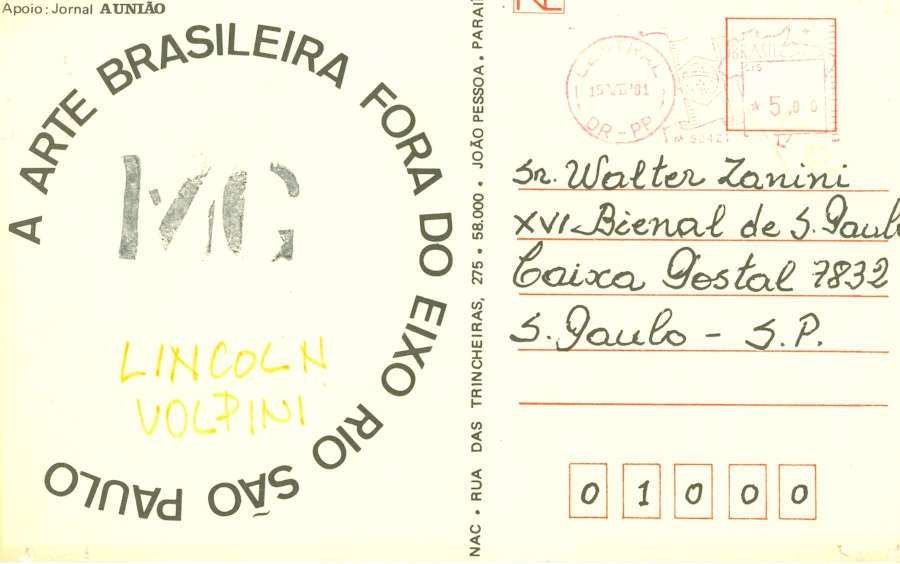 Apoio: Jornal A UNIÃO
A ARTE BRASILEIRA FORA DO EIXO RIO SÃO PAULO
MG
LINCOLN
VOLPINI
NAC • RUA DAS TRINCHEIRAS, 275 • 58.000 • JOÃO PESSOA, PARAÍ
CENTRAL
15 VII 81
DR-PP
BRASIL
* 5,00
Sr. Walter Zanini
XVI Bienal de S. Paulo
Caixa Postal 7832
S. Paulo - S.P.
0 1 0 0 0